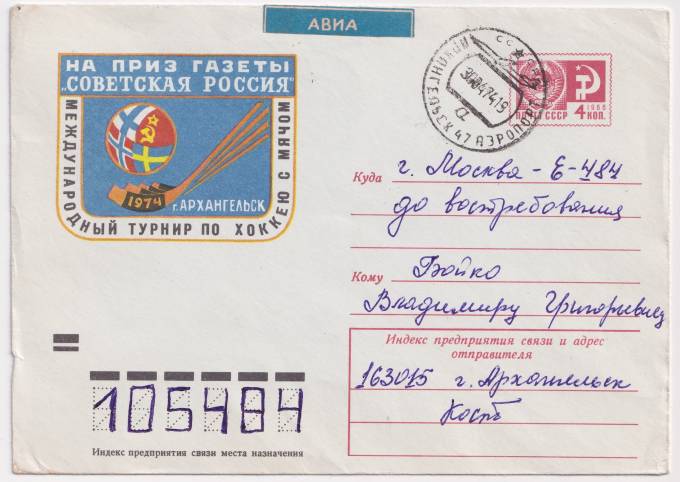 АВИА
НА ПРИЗ ГАЗЕТЫ
"СОВЕТСКАЯ РОССИЯ"
МЕЖДУНАРОДНЫЙ ТУРНИР ПО ХОККЕЮ С МЯЧОМ
1974 г. АРХАНГЕЛЬСК
СССР
АРХАНГЕЛЬСК 47 АЭРОПОРТ
300474 19
а
1966
ПОЧТА СССР 4 КОП.
Куда г. Москва - Е-484
до востребования
Кому Бойко
Владимиру Григорьевичу
Индекс предприятия связи и адрес
отправителя
163015 г. Архангельск
Костт
105484
Индекс предприятия связи места назначения